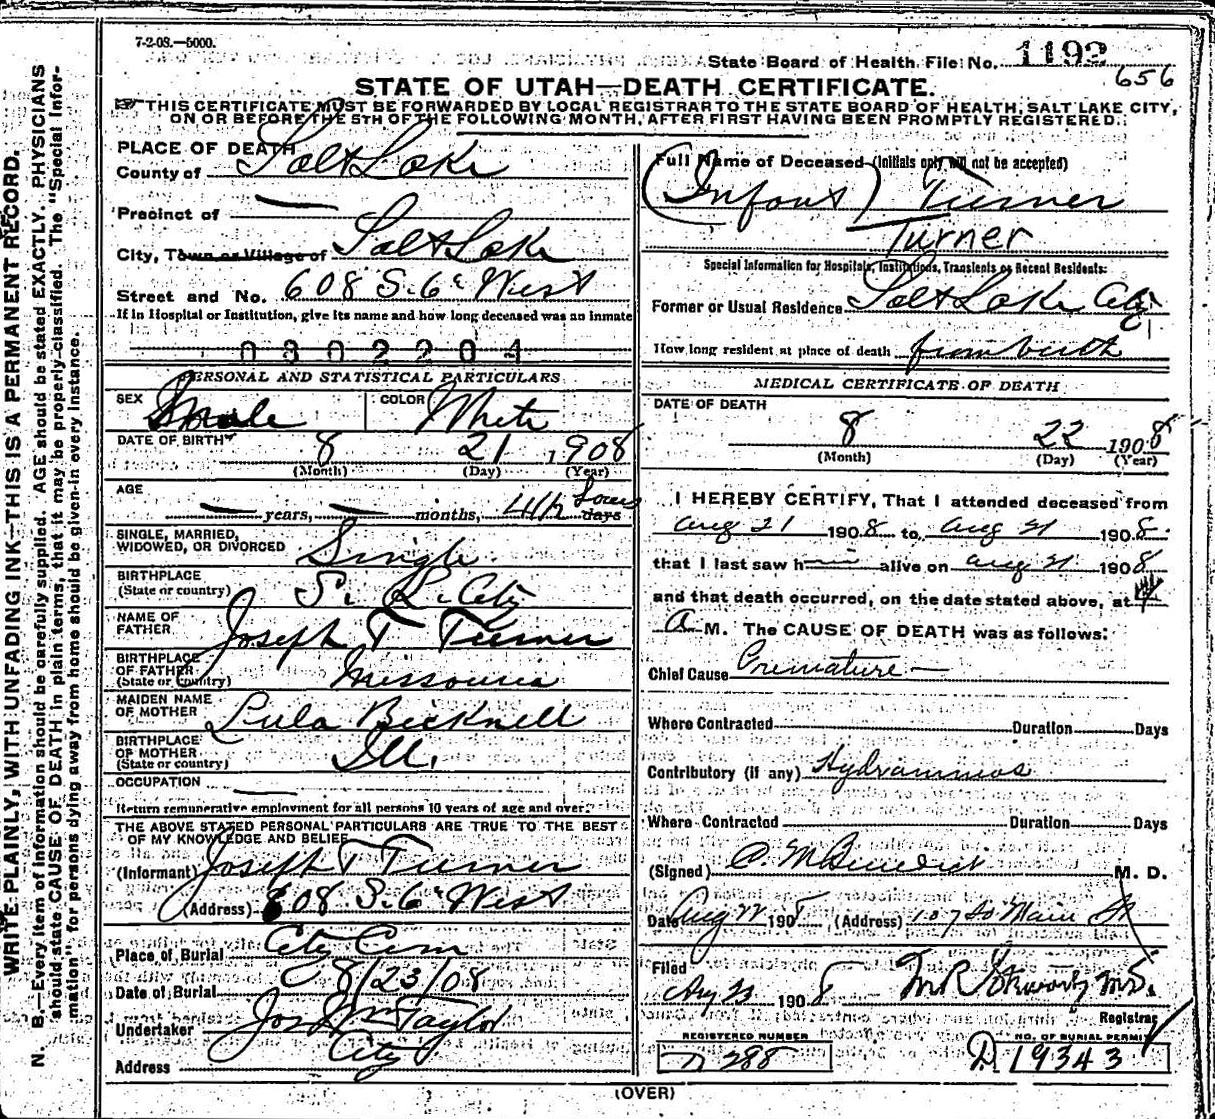 7-2-08.—5000.
State Board of Health File No. 1192
656
STATE OF UTAH—DEATH CERTIFICATE.
THIS CERTIFICATE MUST BE FORWARDED BY LOCAL REGISTRAR TO THE STATE BOARD OF HEALTH, SALT LAKE CITY,
ON OR BEFORE THE 5TH OF THE FOLLOWING MONTH, AFTER FIRST HAVING BEEN PROMPTLY REGISTERED.
WRITE PLAINLY, WITH UNFADING INK—THIS IS A PERMANENT RECORD.
N. B.—Every item of information should be carefully supplied. AGE should be stated EXACTLY. PHYSICIANS
should state CAUSE OF DEATH in plain terms, that it may be properly classified. The "Special Infor-
mation" for persons dying away from home should be given in every instance.
PLACE OF DEATH
County of Salt Lake
Precinct of —
City, Town or Village of Salt Lake
Street and No. 608 S. 6th West
If in Hospital or Institution, give its name and how long deceased was an inmate
0302204
PERSONAL AND STATISTICAL PARTICULARS
SEX Male COLOR White
DATE OF BIRTH 8 21 1908
(Month) (Day) (Year)
AGE — years, — months, 4 1/2 hours days
SINGLE, MARRIED,
WIDOWED, OR DIVORCED Single
BIRTHPLACE
(State or country) S. L. City
NAME OF
FATHER Joseph T Turner
BIRTHPLACE
OF FATHER
(State or Country) Missouria
MAIDEN NAME
OF MOTHER Lula Bicknell
BIRTHPLACE
OF MOTHER
(State or country) Ill.
OCCUPATION —
Return remunerative employment for all persons 10 years of age and over.
THE ABOVE STATED PERSONAL PARTICULARS ARE TRUE TO THE BEST
OF MY KNOWLEDGE AND BELIEF
(Informant) Joseph T Turner
(Address) 608 S. 6th West
Place of Burial City Cem
Date of Burial 8/23/08
Undertaker Jos Wm Taylor
Address City
Full Name of Deceased (Initials only will not be accepted)
(Infant) Turner
Turner
Special Information for Hospitals, Institutions, Transients or Recent Residents:
Former or Usual Residence Salt Lake City
How long resident at place of death from birth
MEDICAL CERTIFICATE OF DEATH
DATE OF DEATH
8 22 1908
(Month) (Day) (Year)
I HEREBY CERTIFY, That I attended deceased from
Aug 21 1908 to Aug 21 1908
that I last saw h— alive on Aug 21 1908
and that death occurred, on the date stated above, at
A M. The CAUSE OF DEATH was as follows:
Chief Cause Premature —
Where Contracted Duration Days
Contributory (if any) Hydramnios
Where Contracted Duration Days
(Signed) M Benedict M. D.
Date Aug 22 1908 (Address) 107 So Main St
Filed
Aug 23 1908 M.D.
Registrar
REGISTERED NUMBER
288
NO. OF BURIAL PERMIT
D 19343
(OVER)